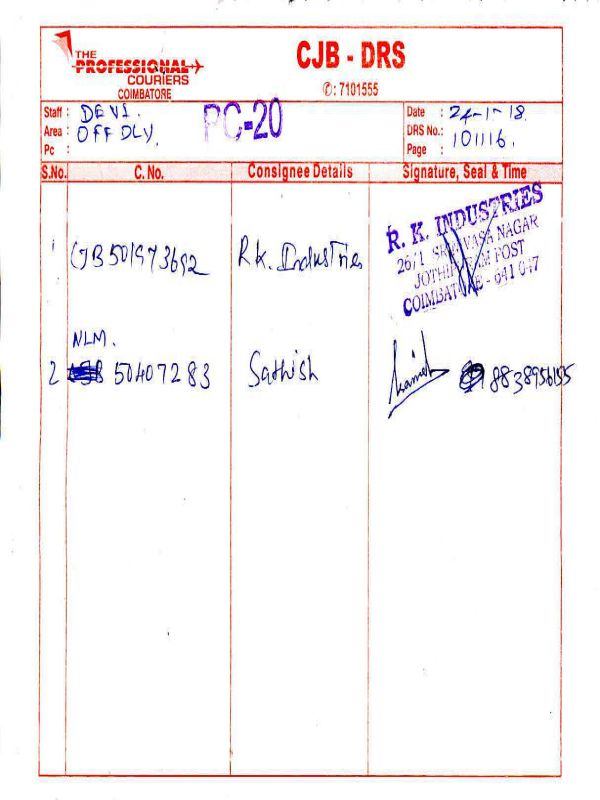 THE
PROFESSIONAL
COURIERS
COIMBATORE
CJB - DRS
✆: 7101555
Staff : DEVI.
Area : OFF DLY.
Pc :
PC-20
Date : 24-1-18
DRS No.: 101116.
Page :
S.No. C. No. Consignee Details Signature, Seal & Time
1 CJB501973692 R.K. Industries
R. K. INDUSTRIES
NAGAR
POST
641 047
NLM.
2 50407283 Sathish